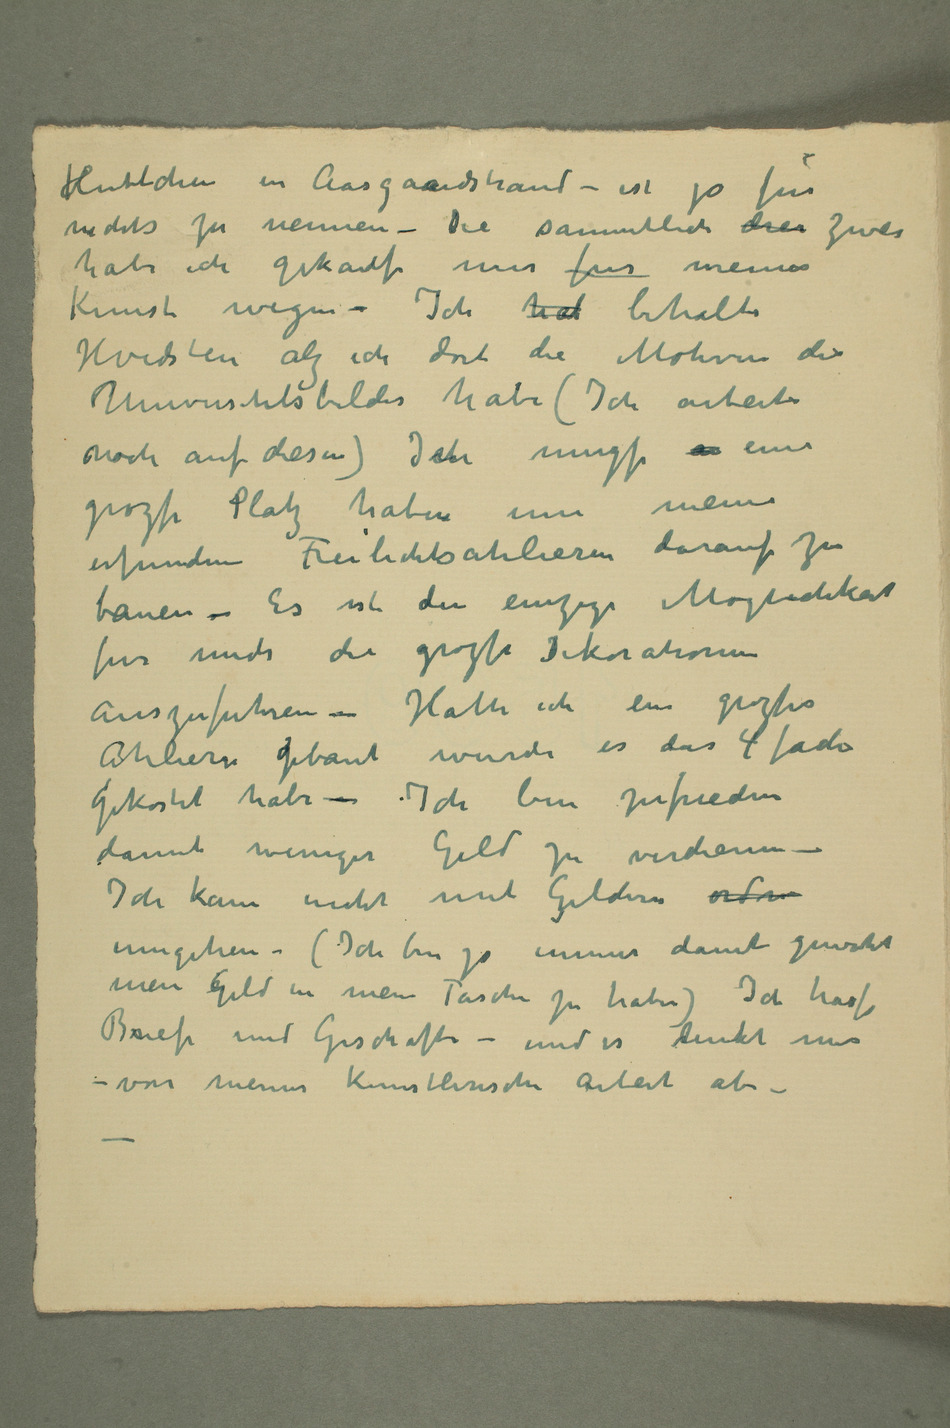 Hüttchen in Aasgaardstrand – ist jo für
nichts zu nennen – Die sammtliche drei zwei
habe ich gekauft nur fur meine
Kunst wegen – Ich hab behalte
Hvidsten alz ich dort die Motiven die
Universitetsbilder habe (Ich arbeite
noch auf diesen) Ich muszs eine
grozse Platz haben um meine
erfunden Freilichtsatelieren darauf zu
bauen – Es ist die einzige Moglichkeit
fur mich die grozse Dekorationen
auszufuhren – Hatte ich ein grozses
Atelieri gebaut wurde es das 4 fache
gekostet habe – Ich bin zufrieden
damit weniger Geld zu verdienen –
Ich kann nicht mit Geldern
umgehen – (Ich bin jo immer damit gewohnt
mein Geld in mein Tasche zu haben) Ich hasse
Briefe und Geschafte – und es lenkt mir
– von meiner Kunstlerische Arbeit ab –
—